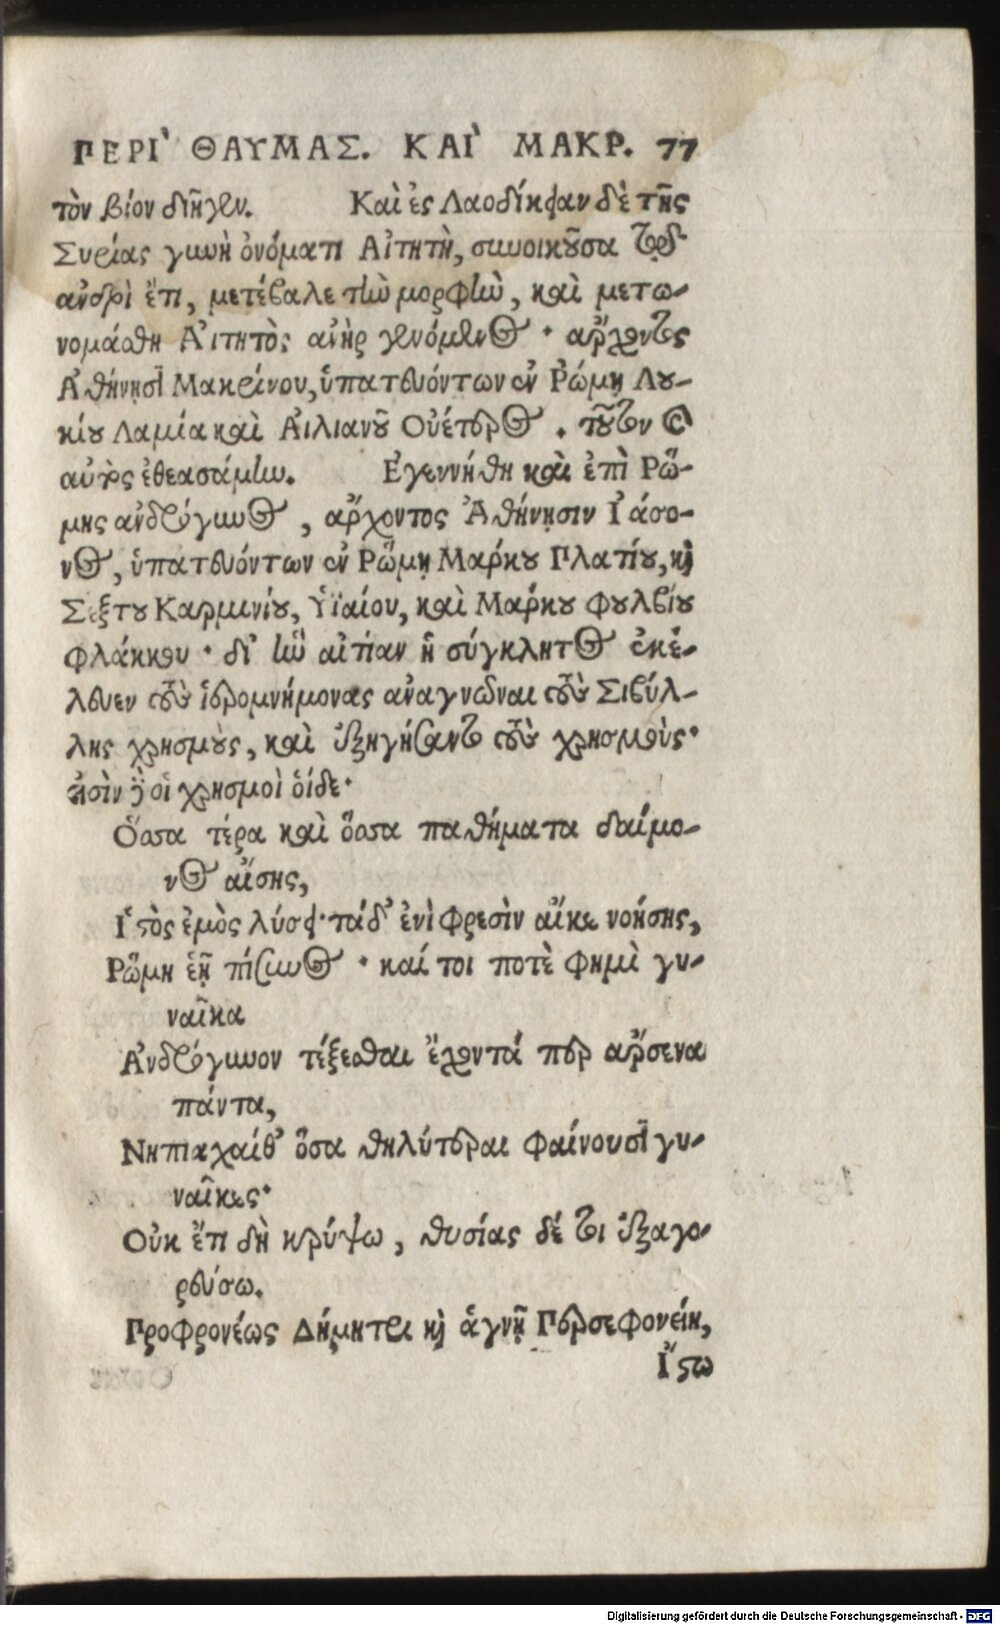 ΠΕΡΙ` ΘΑΥΜΑΣ. ΚΑΙ` ΜΑΚΡ. 77
τὸν βίον διῆγεν. Καὶ ἐς Λαοδίκειαν δὲ τῆς
Συρίας γυνὴ ὀνόματι Αἰτητὴ, συνοικοῦσα τῷ
ἀνδρὶ ἔτι, μετέβαλε τὴν μορφὴν, καὶ μετω-
νομάσθη Αἰτητὸς ἀνὴρ γενόμενος· ἄρχοντος
Ἀθήνησι Μακρίνου, ὑπατευόντων ἐν Ῥώμῃ Λου-
κίου Λαμία καὶ Αἰλιανοῦ Οὐέτερος. τοῦτον καὶ
αὐτὸς ἐθεασάμην. Ἐγεννήθη καὶ ἐπὶ Ῥώ-
μης ἀνδρόγυνος, ἄρχοντος Ἀθήνησιν Ἰάσο-
νος, ὑπατευόντων ἐν Ῥώμῃ Μάρκου Πλατίου, καὶ
Σέξτου Καρμινίου, Ὑϊαίου, καὶ Μάρκου Φουλβίου
Φλάκκου· δι' ἣν αἰτίαν ἡ σύγκλητος ἐκέ-
λευεν τοὺς ἱερομνήμονας ἀναγνῶναι τοὺς Σιβύλ-
λης χρησμοὺς, καὶ ἐξηγήσαντο τοὺς χρησμοὺς·
εἰσὶν δὲ οἱ χρησμοὶ οἵδε·
Ὅσσα τέρα καὶ ὅσσα παθήματα δαίμο-
νος αἴσης,
Ἱστὸς ἐμὸς λύσει· τάδ' ἐνὶ φρεσὶν αἴκε νοήσης,
Ῥώμη ἑῇ πίσυνος· καί τοι ποτὲ φημὶ γυ-
ναῖκα
Ἀνδρόγυνον τέξεσθαι ἔχοντά περ ἄρσενα
πάντα,
Νηπιαχαίθ' ὅσα θηλύτεραι φαίνουσι γυ-
ναῖκες·
Οὐκ ἔτι δὴ κρύψω, θυσίας δέ τοι ἐξαγο-
ρεύσω.
Προφρονέως Δήμητρι καὶ ἁγνῇ Περσεφονείῃ,
Ἵστω
Digitalisierung gefördert durch die Deutsche Forschungsgemeinschaft - DFG